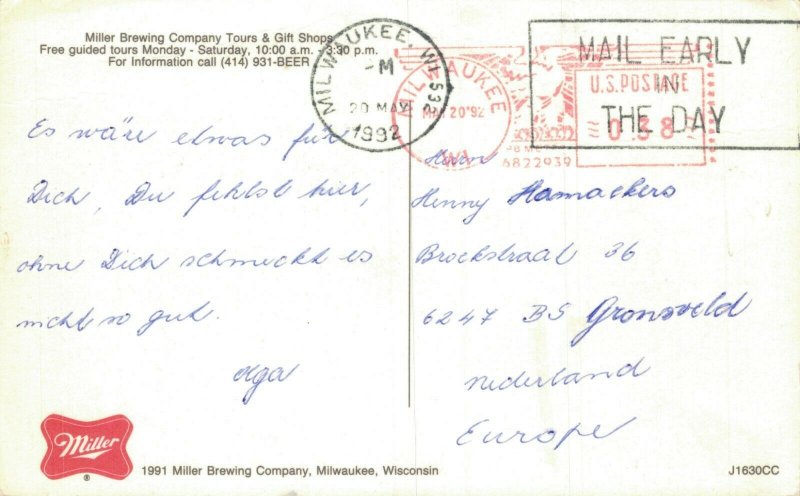 Miller Brewing Company Tours & Gift Shops
Free guided tours Monday - Saturday, 10:00 a.m. - 3:30 p.m.
For Information call (414) 931-BEER
MILWAUKEE, WI 532
-M
20 MAY
1992
MILWAUKEE
MAY 20'92
WI
U.S. POSTAGE
0.38
6822939
MAIL EARLY
IN
THE DAY
Es wäre etwas für
Dich, Du fehlst hier,
ohne Dich schmeckt es
nicht so gut.
Olga
Herrn
Henny Hamackers
Brockstraat 36
6247 BS Gronsveld
Nederland
Europe
Miller
®
1991 Miller Brewing Company, Milwaukee, Wisconsin
J1630CC